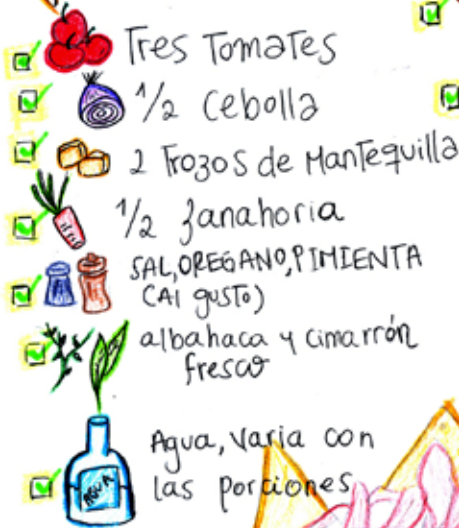 Tres Tomates
1/2 Cebolla
2 Trozos de Mantequilla
1/2 Zanahoria
SAL, OREGANO, PIMIENTA
(Al gusto)
albahaca y cimarrón
fresco
Agua, varia con
las porciones
AGUA